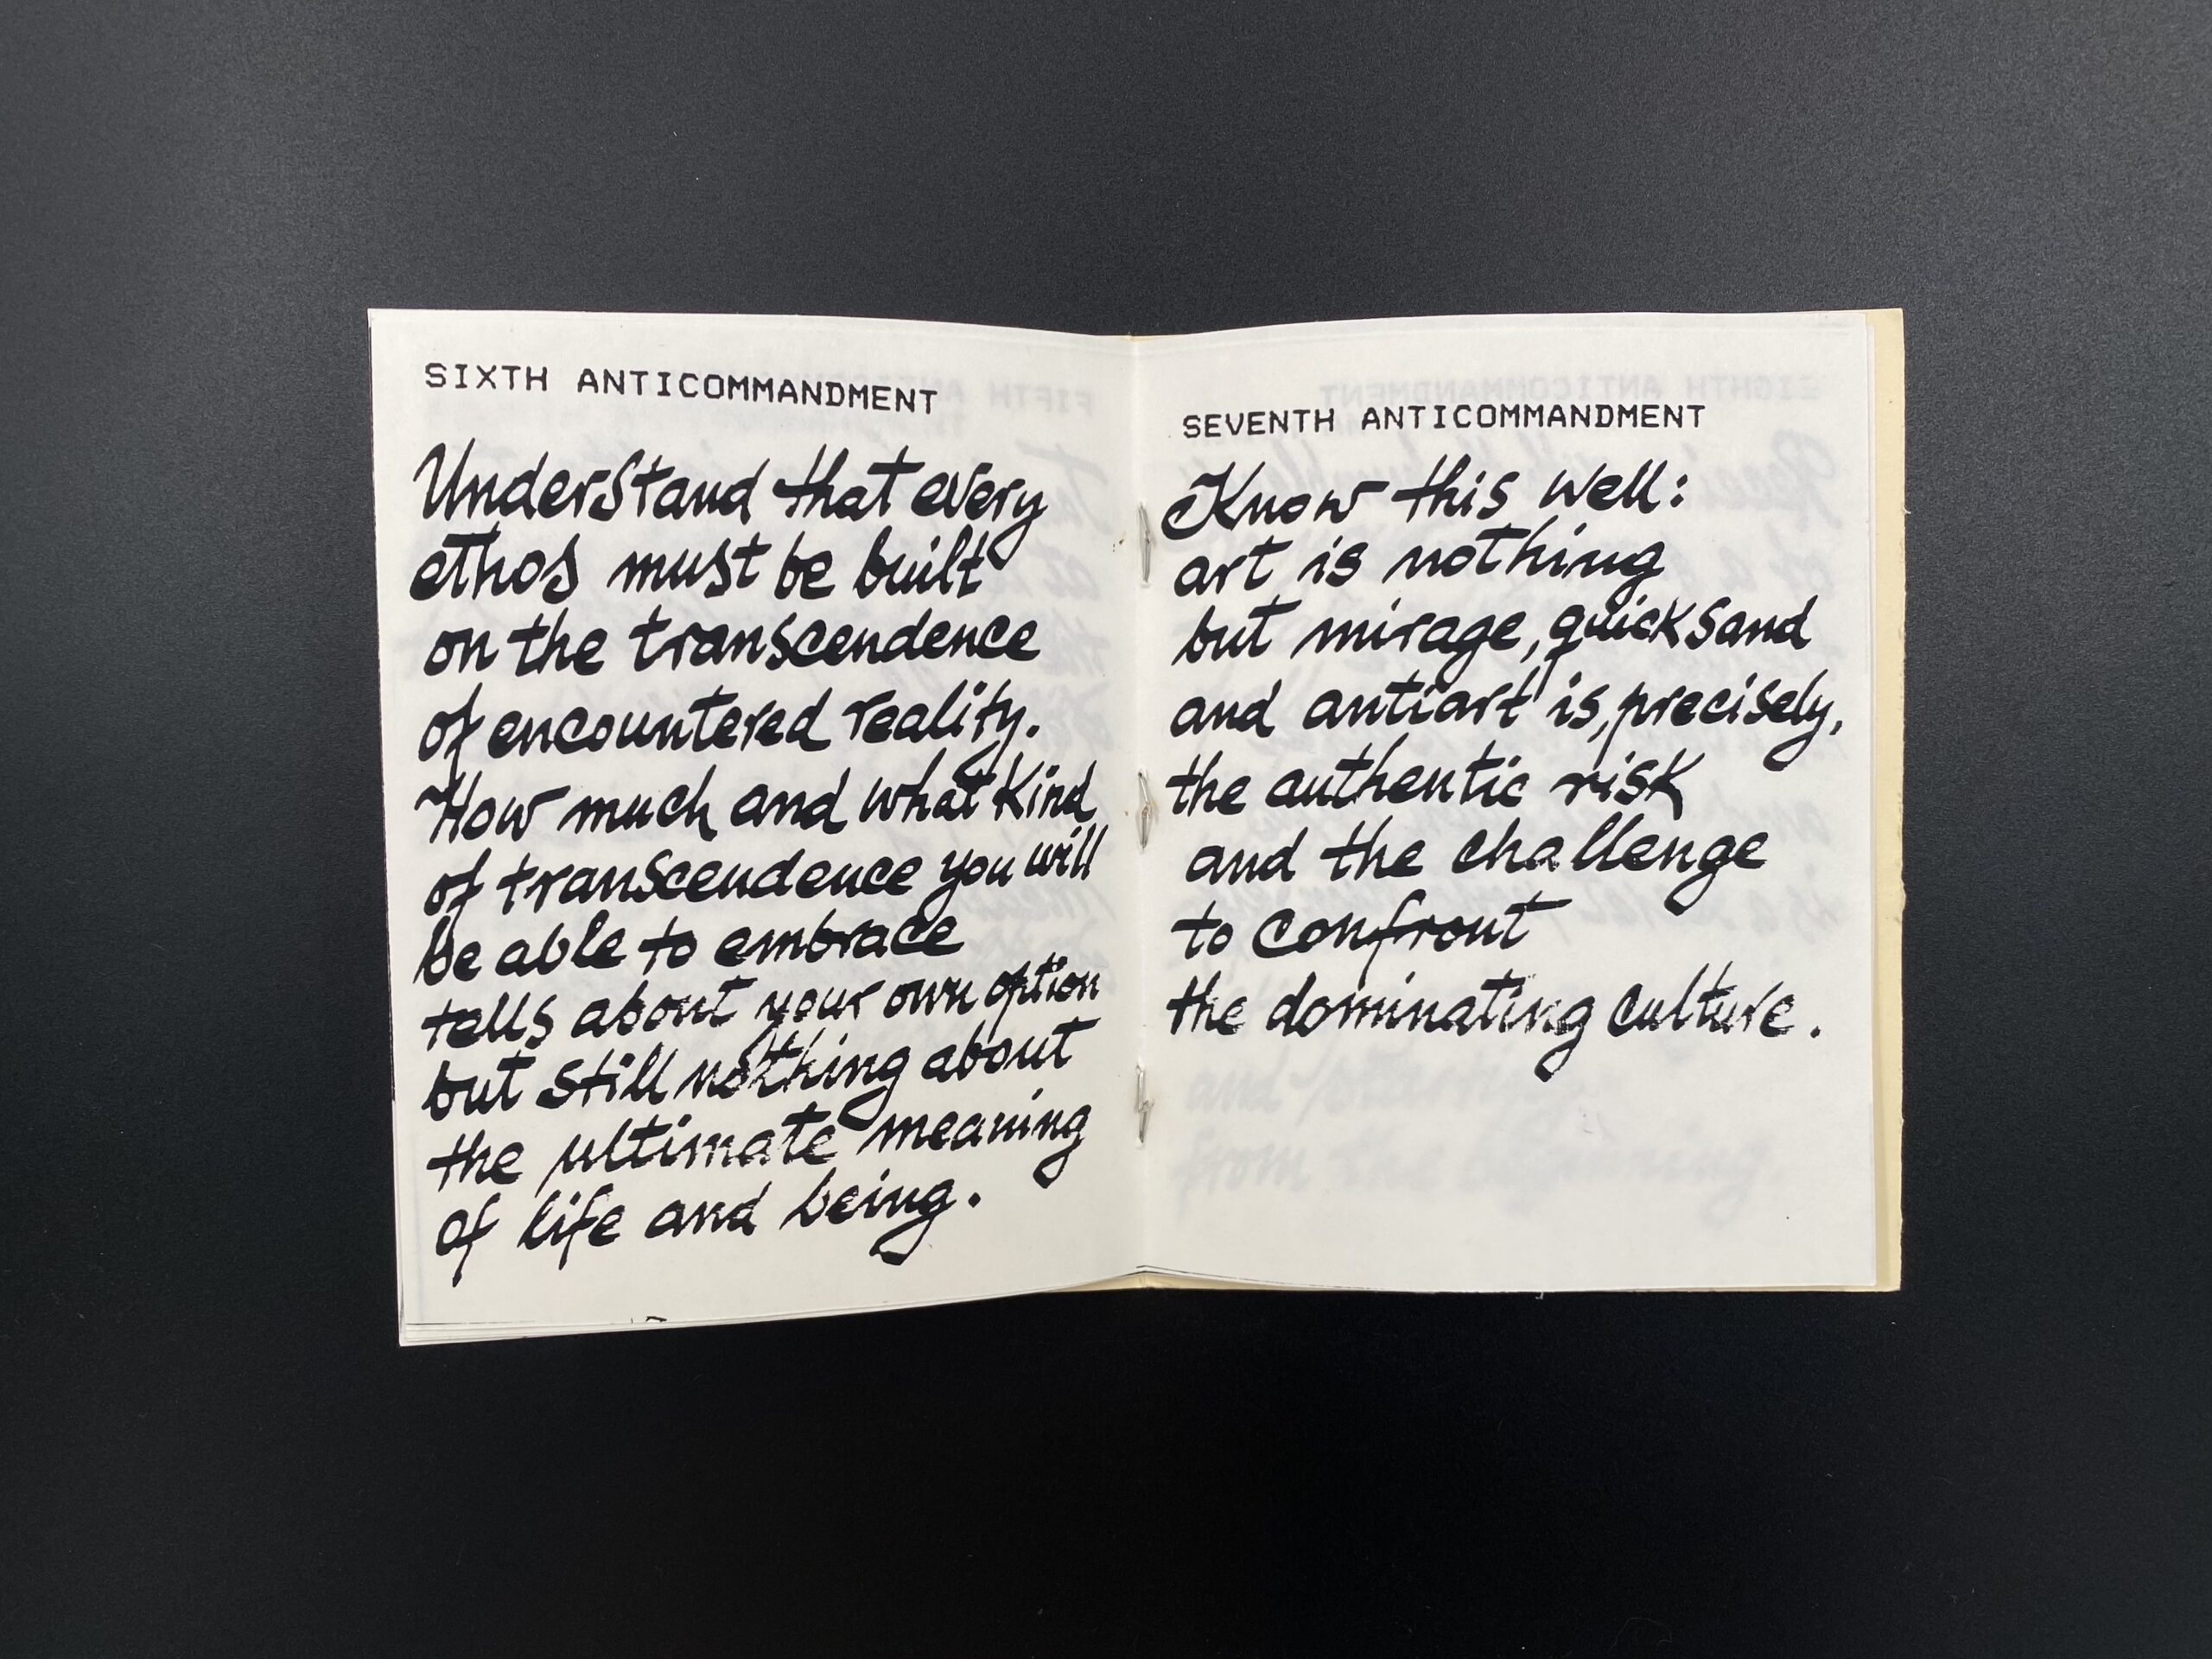 SIXTH ANTICOMMANDMENT
Understand that every
ethos must be built
on the transcendence
of encountered reality.
How much and what kind
of transcendence you will
be able to embrace
tells about your own option
but still nothing about
the ultimate meaning
of life and being.
SEVENTH ANTICOMMANDMENT
Know this well:
art is nothing
but mirage, quicksand
and antiart is, precisely,
the authentic risk
and the challenge
to confront
the dominating culture.